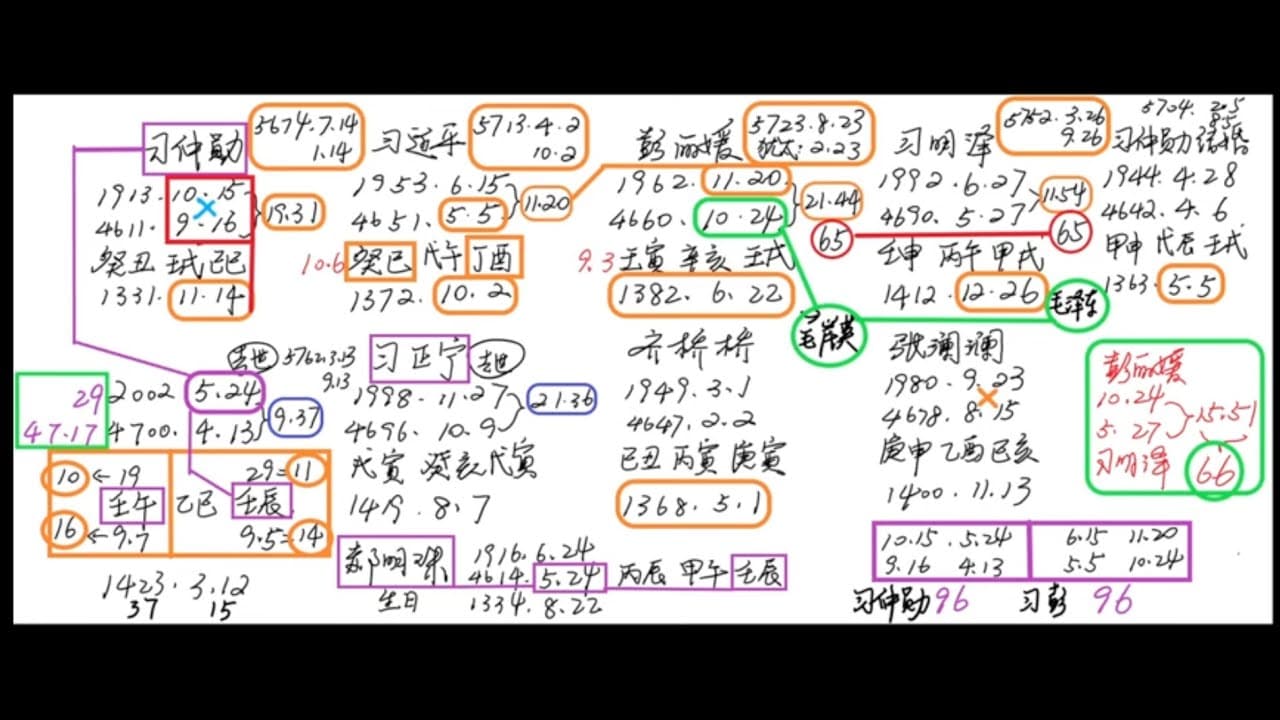 习仲勋 5674.7.14
1.14
1913.10.15
4611.9.16
19.31
癸丑 壬戌 己巳
1331.11.14
习近平 5713.4.2
10.2
1953.6.15
4651.5.5
11.20
10.6 癸巳 戊午 丁酉
1372.10.2
彭丽媛 5723.8.23
犹太:2.23
1962.11.20
4660.10.24
21.44
65
9.3 壬寅 辛亥 壬戌
1382.6.22
习明泽 5752.3.26
9.26
1992.6.27
4690.5.27
11.54
65
壬申 丙午 甲戌
1412.12.26
5704.
习仲勋结婚
1944.4.28
4642.4.6
甲申 戊辰 壬戌
1363.5.5
毛岸英
毛泽东
去世 5762.3.13
9.13
29 2002 5.24
47.17 4700.4.13
9.37
10 ← 19
壬午
16 ← 9.7
29=11
乙巳 壬辰
9.5=14
1423.3.12
37 15
习正宁 去世
1998.11.27
4696.10.9
21.36
戊寅 癸亥 戊寅
1419.8.7
齐桥桥
1949.3.1
4647.2.2
己丑 丙寅 庚寅
1368.5.1
张澜澜
1980.9.23
4678.8.15
庚申 乙酉 己亥
1400.11.13
彭丽媛
10.24
5.27
15.51
习明泽
66
生日
1916.6.24
4614.5.24
丙辰 甲午 壬辰
1334.8.22
10.15 .5.24
9.16 4.13
6.15 11.20
5.5 10.24
习仲勋96 习彭 96